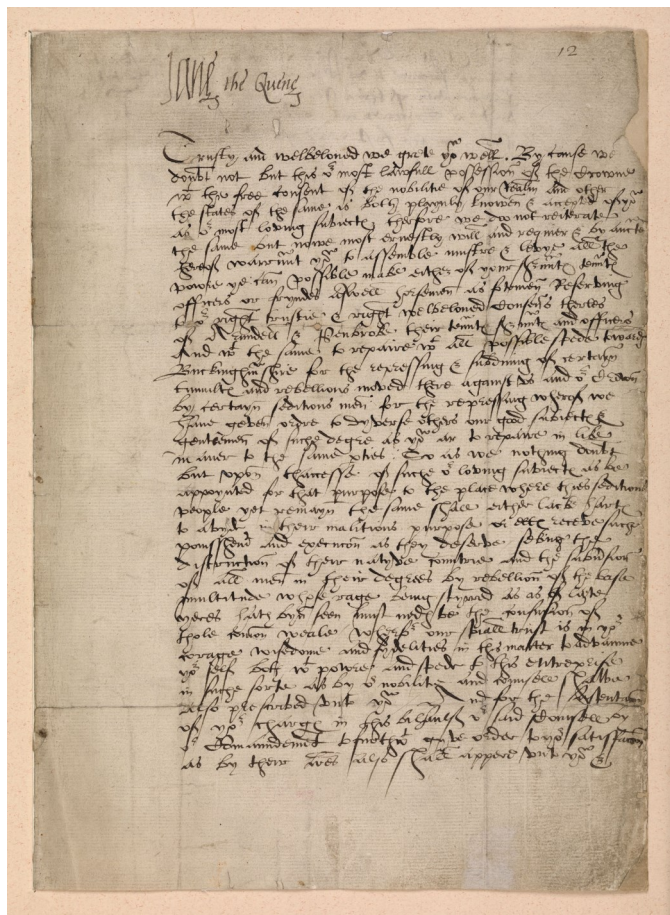 12
Jane the Quene
Trusty and welbeloved we grete yow well. By cause we
doubt not but this or most lawfull possession of the Crowne
wt the free consent of the nobilitie of our realm and other
the states of the same is both playnly knowen & accepted of yow
as or most loving subiects therfore we do not reiterate
the same but nowe most ernestly will and require & by
herof warrant yow to assemble mustre & levye all the
powre ye can possible make either of your servnts tennts
officers or fryndes aswell horsemen as footemen Reserving
to or right trustie & right welbeloved Cousens therles
of Arundell & Penbroke their tennts servnts and officers
And wt the same to repaire wt all possible spede towards
Buckinghmshire for the repressing & subduing of certain
tumults and rebellions moved there against us and or Crown
by certayn seditious men for the repressing wherof we
have geven ordre to dyverse others our good subiects &
gentlemen of suche degre as yow ar to repaire in like
maner to the same pties. So as we nothing doubt
but upon thaccesse of suche or loving subiects as be
appoynted for that purpose to the place where thies seditious
people yet remayn the same shall either lacke harts
to abyde in their malitious purpose or ells receve suche
ponishmt and execucon as they deserve seking the
distruction of their natyve countrie and the subversion
of all men in their degrees by rebellion of the base
multitude whose rage being styrred as as of late
yeres hath byn seen must neds be the confusion of
thole comon weale wherfor our spiall trust is in yor
corage wisedome and fydelities in this matter to advaunce
yor self both wt powre and spede to this enterprise
in suche sorte as by or nobilitie and counsele shalbe
also prescribed unt yow And for the sustentacon
of yor chargs in this behaulf or said Counsell by
or Comaundemt do furthwt gyve order to yor satisfaccon
as by their lres also shall appere unt yow &